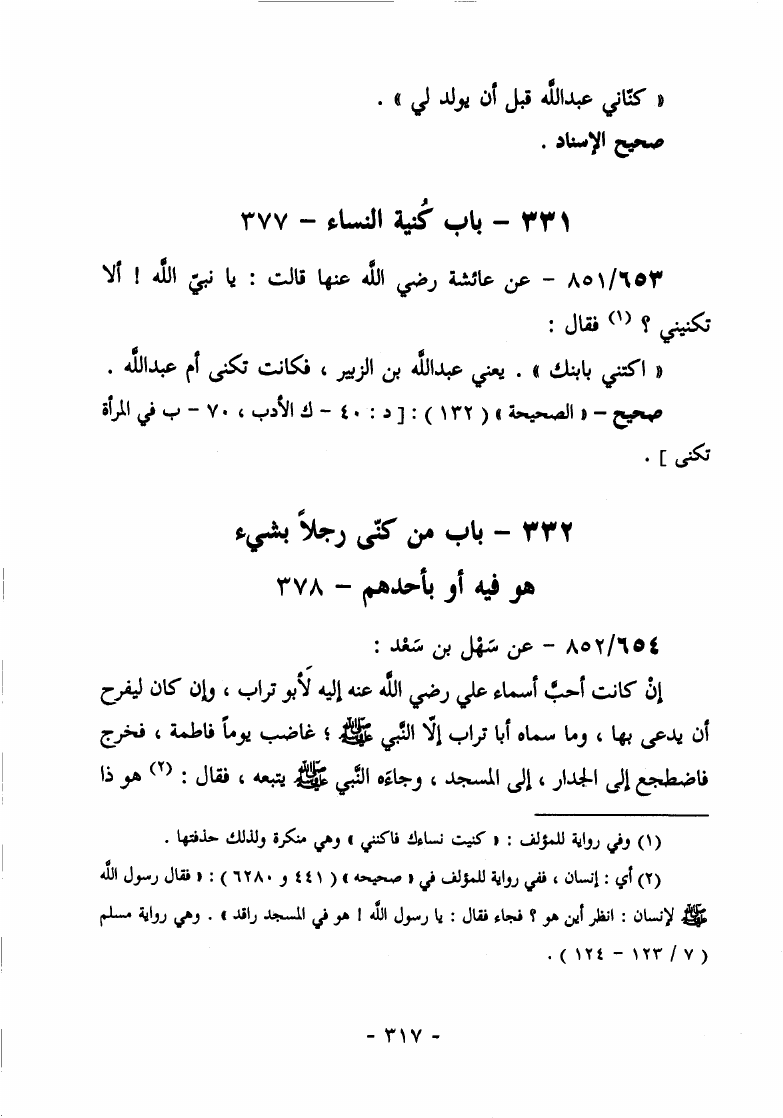 « كنّاني عبدالله قبل أن يولد لي » .
صحيح الإسناد .
٣٣١ – باب كُنية النساء – ٣٧٧
٨٥١/٦٥٣ – عن عائشة رضي الله عنها قالت : يا نبيّ الله ! ألا
تكنيني ؟ (١) فقال :
« اكتني بابنك » . يعني عبدالله بن الزبير ، فكانت تكنى أم عبدالله .
صحيح – « الصحيحة » ( ١٣٢ ) : [ د : ٤٠ – ك الأدب ، ٧٠ – ب في المرأة
تكنى ] .
٣٣٢ – باب من كنّى رجلاً بشيء
هو فيه أو بأحدهم – ٣٧٨
٨٥٢/٦٥٤ – عن سَهْل بن سَعْد :
إنْ كانت أحبَّ أسماء علي رضي الله عنه إليه لَأبو تراب ، وإن كان ليفرح
أن يدعى بها ، وما سماه أبا تراب إلّا النَّبي ﷺ ؛ غاضب يوماً فاطمة ، فخرج
فاضطجع إلى الجدار ، إلى المسجد ، وجاءَه النَّبي ﷺ يتبعه ، فقال : (٢) هو ذا
(١) وفي رواية للمؤلف : « كنيت نساءك فاكنني » وهي منكرة ولذلك حذفتها .
(٢) أي : إنسان ، ففي رواية للمؤلف في « صحيحه » ( ٤٤١ و ٦٢٨٠ ) : « فقال رسول الله
ﷺ لإنسان : انظر أين هو ؟ فجاء فقال : يا رسول الله ! هو في المسجد راقد » . وهي رواية مسلم
( ٧ / ١٢٣ – ١٢٤ ) .
- ٣١٧ -